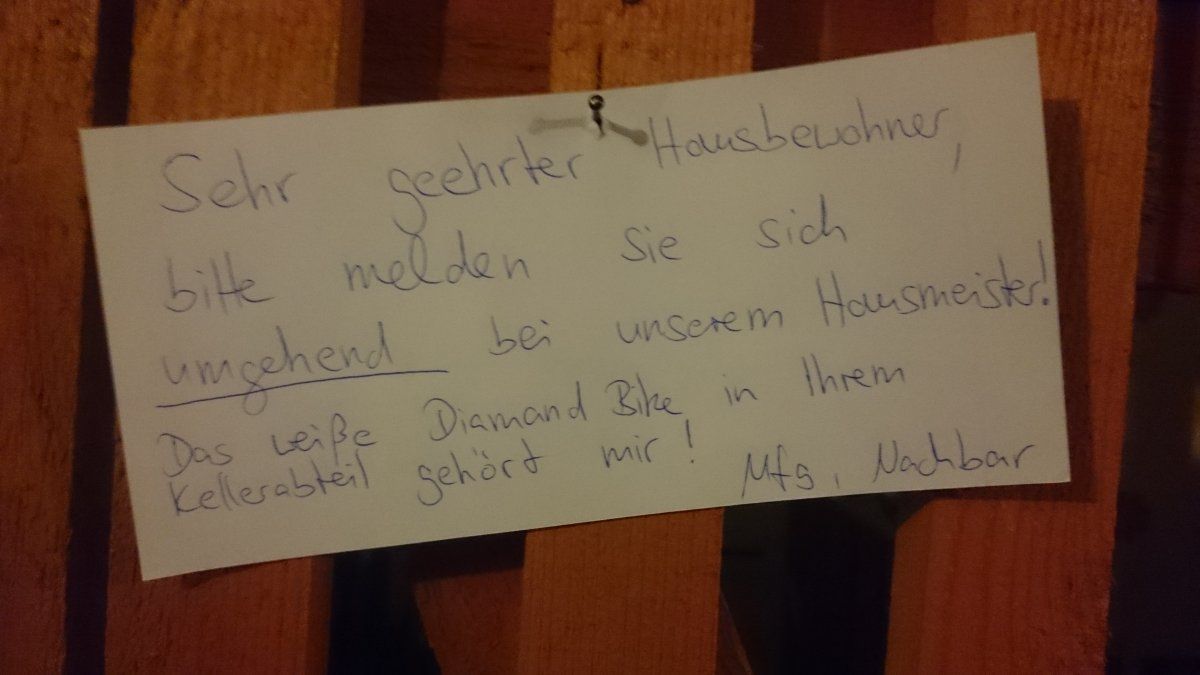 Sehr geehrter Hausbewohner,
bitte melden Sie sich
umgehend bei unserem Hausmeister!
Das weiße Diamand Bike in Ihrem
Kellerabteil gehört mir! Mfg, Nachbar